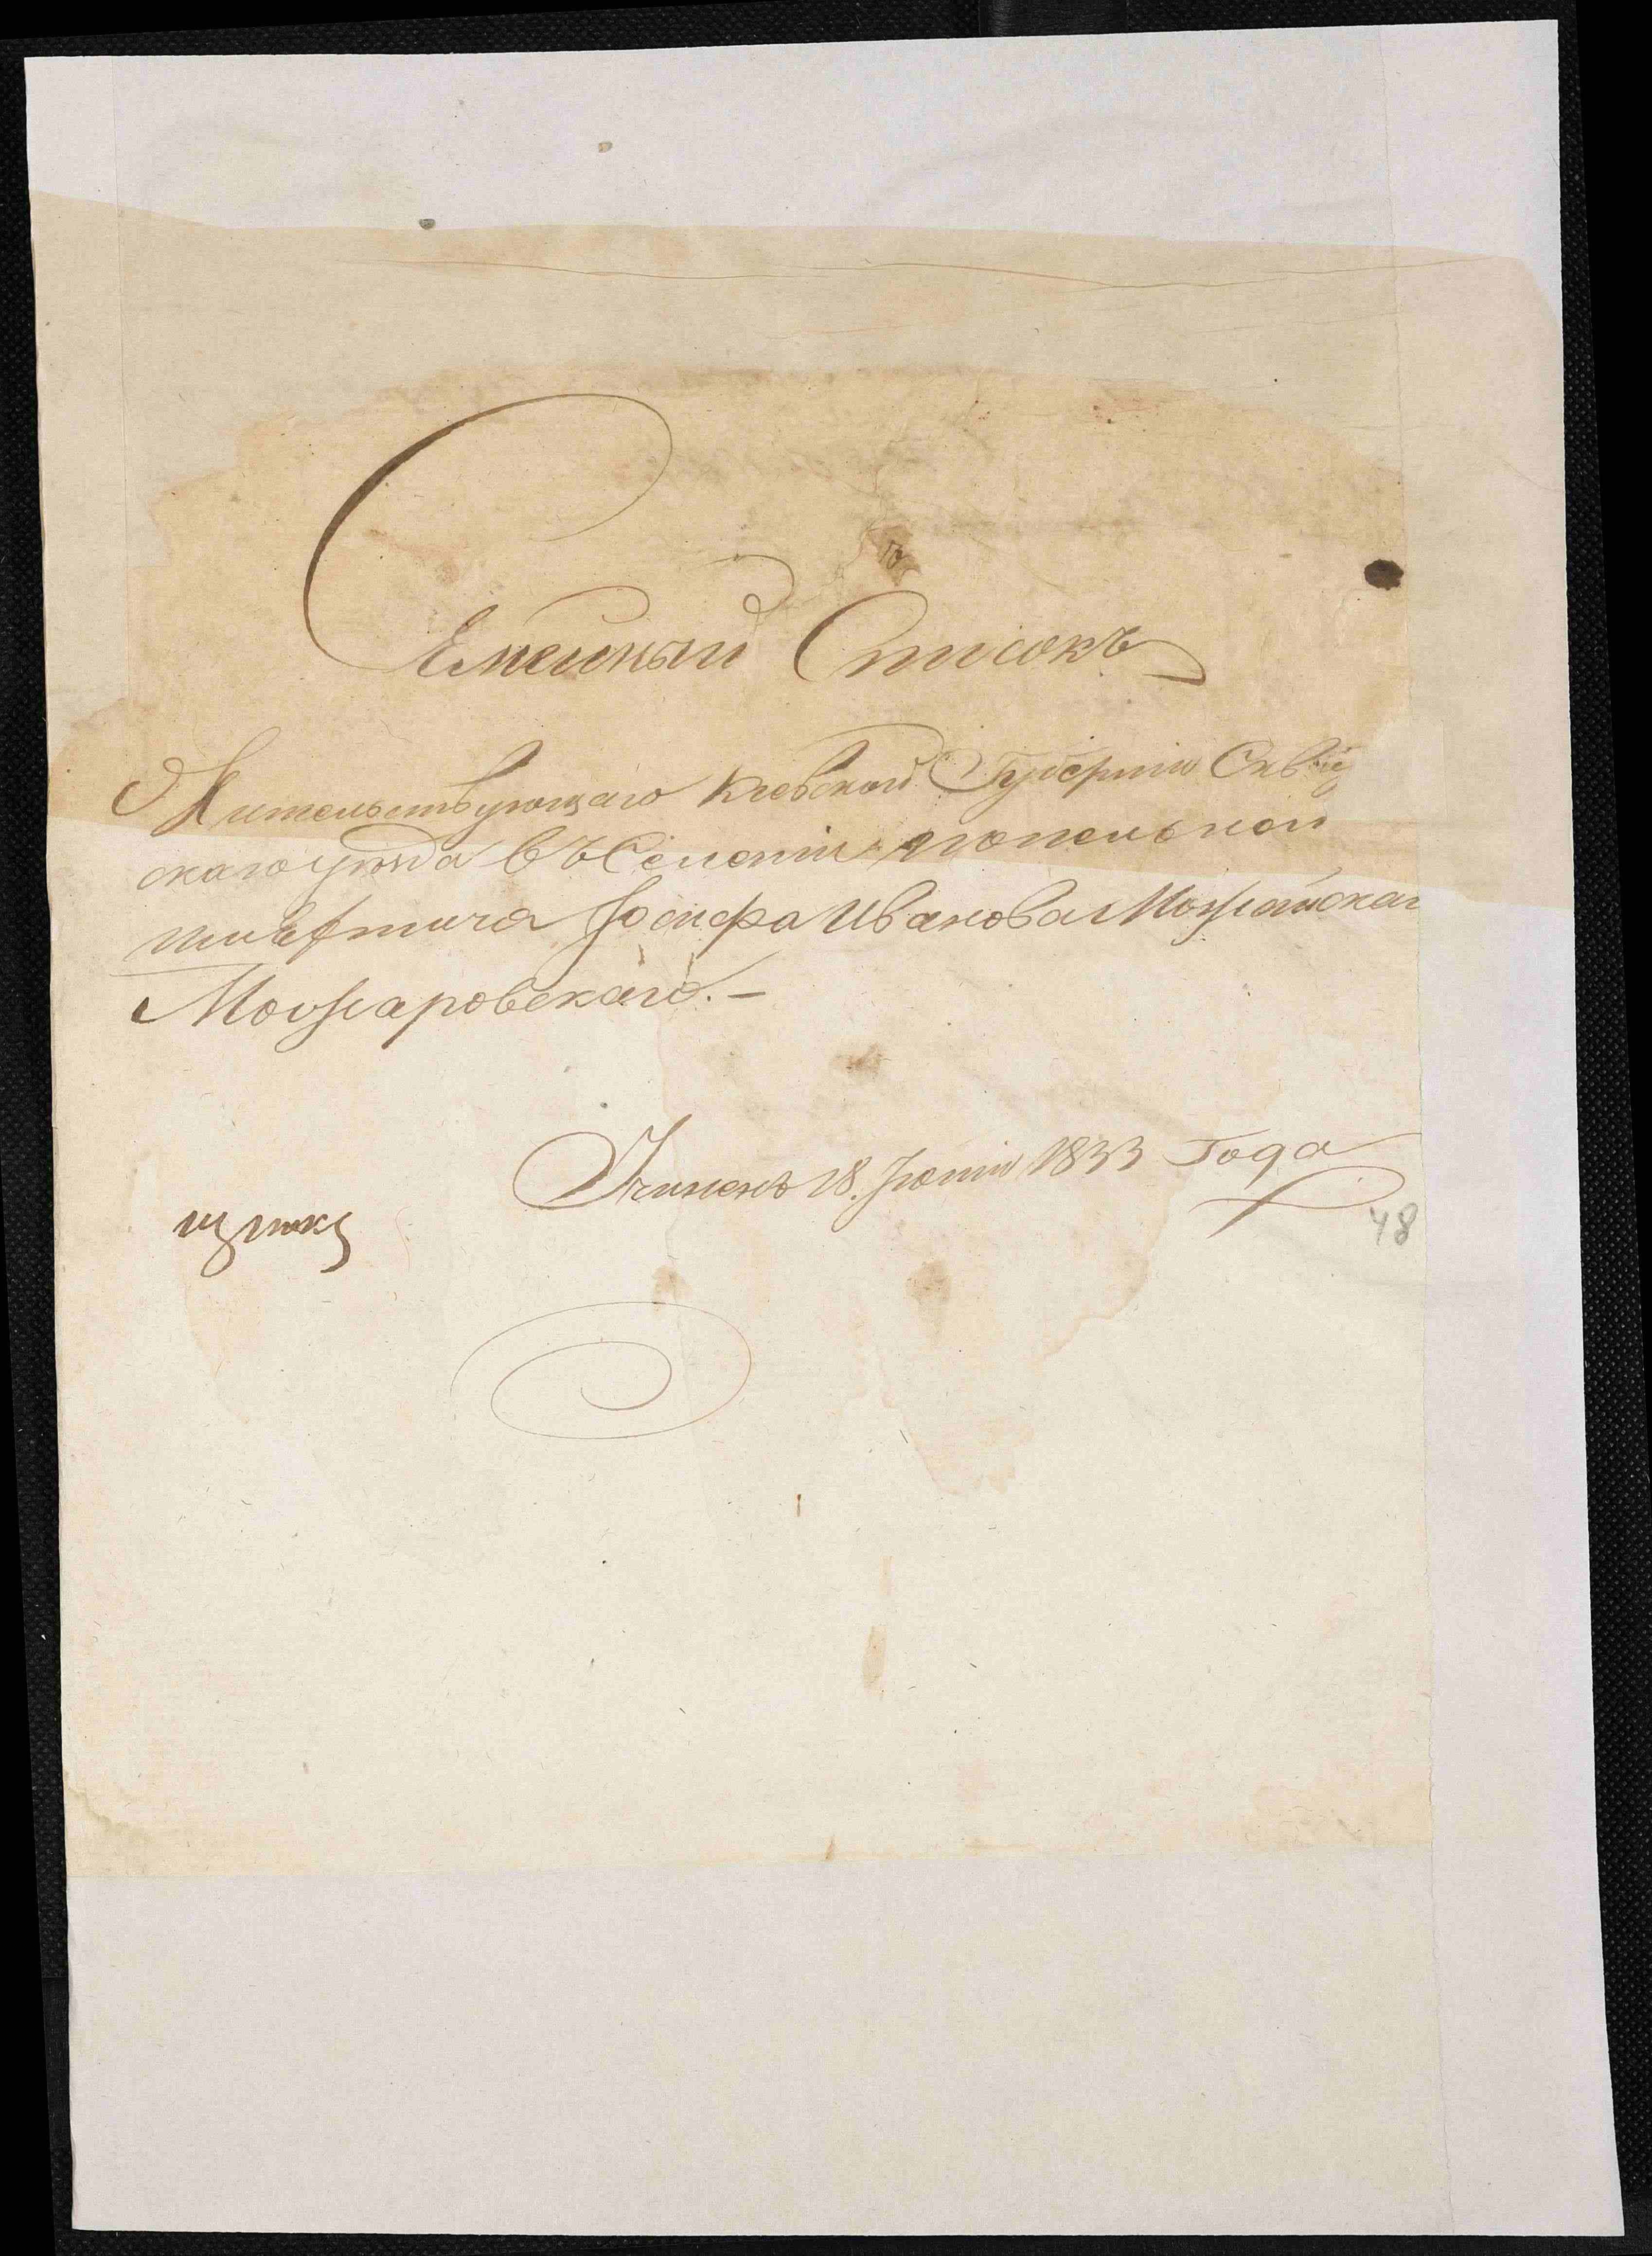 Семейный Списокъ
Жительствующаго Киевской Губерніи Сквир
скаго уезда въ Селеніи топельной
шляхтича Іосифа Иванова Можайскаг
Можаровскаго. —
Учиненъ 18. Іюнія 1833 Года
48